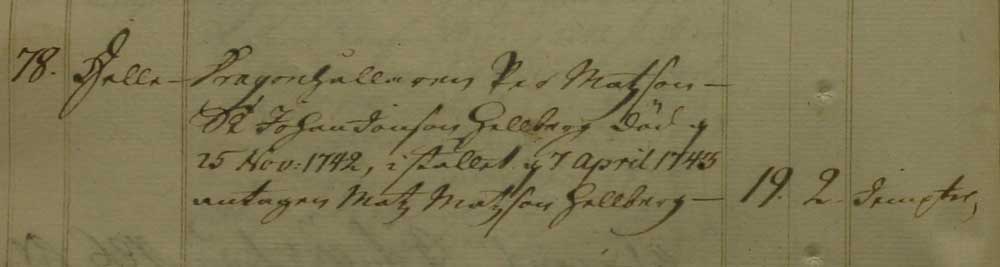 78. Helle — Dragonhållaren Per Matzson —
Johan Jonson Hellberg död d
25 Nov: 1742, i stället d 7 April 1743
antagen Matz Matzson Hellberg — 19. 2. Jempter,